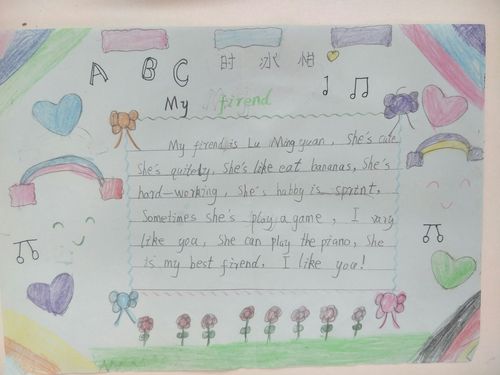 A B C
时冰柑
My firend
My firend is Lu Mingyuan, She's cute
She's quitely, She's like eat bananas, She's
hard-working, She's habby is sprint,
Sometimes she's play a game, I vary
like you, She can play the piano, She
is my best firend, I like you!